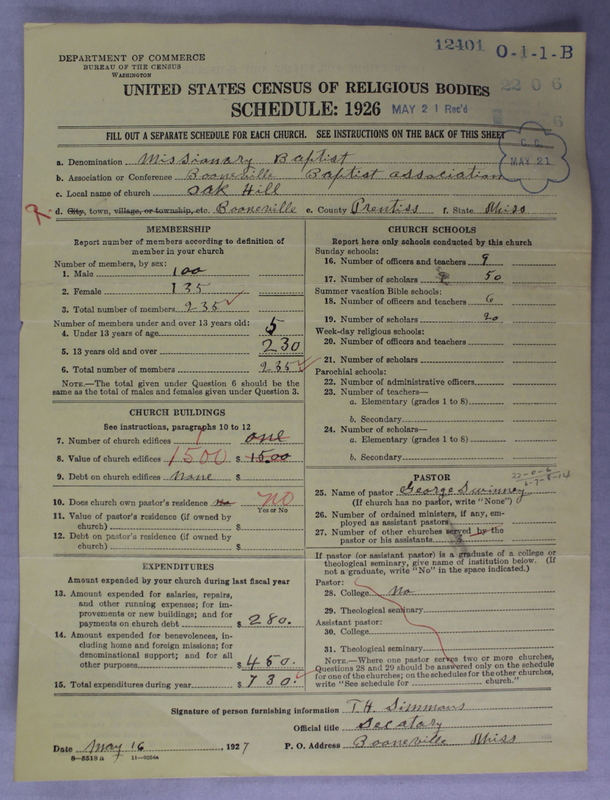 12401 O-1-1-B
DEPARTMENT OF COMMERCE
BUREAU OF THE CENSUS
WASHINGTON
UNITED STATES CENSUS OF RELIGIOUS BODIES
2206
SCHEDULE: 1926 MAY 21 Rec'd
FILL OUT A SEPARATE SCHEDULE FOR EACH CHURCH. SEE INSTRUCTIONS ON THE BACK OF THIS SHEET
C. C.
MAY 21
a. Denomination Missionary Baptist
b. Association or Conference Booneville Baptist association
c. Local name of church Oak Hill
d. City, town, village, or township, etc. Booneville e. County Prentiss f. State Miss
MEMBERSHIP
Report number of members according to definition of
member in your church
Number of members, by sex:
1. Male 100
2. Female 135
3. Total number of members 235
Number of members under and over 13 years old:
4. Under 13 years of age 5
5. 13 years old and over 230
6. Total number of members 235
NOTE.—The total given under Question 6 should be the
same as the total of males and females given under Question 3.
CHURCH BUILDINGS
See instructions, paragraphs 10 to 12
7. Number of church edifices 1 one
8. Value of church edifices 1500 $ 15.00
9. Debt on church edifices None $
10. Does church own pastor's residence no No
Yes or No
11. Value of pastor's residence (if owned by
church) $
12. Debt on pastor's residence (if owned by
church) $
EXPENDITURES
Amount expended by your church during last fiscal year
13. Amount expended for salaries, repairs,
and other running expenses; for im-
provements or new buildings; and for
payments on church debt $ 280.
14. Amount expended for benevolences, in-
cluding home and foreign missions; for
denominational support; and for all
other purposes $ 450.
15. Total expenditures during year $ 730.
CHURCH SCHOOLS
Report here only schools conducted by this church
Sunday schools:
16. Number of officers and teachers 9
17. Number of scholars 50
Summer vacation Bible schools:
18. Number of officers and teachers 6
19. Number of scholars 20
Week-day religious schools:
20. Number of officers and teachers
21. Number of scholars
Parochial schools:
22. Number of administrative officers
23. Number of teachers—
a. Elementary (grades 1 to 8)
b. Secondary
24. Number of scholars—
a. Elementary (grades 1 to 8)
b. Secondary
PASTOR
25. Name of pastor George Swinney
(If church has no pastor, write "None")
26. Number of ordained ministers, if any, em-
ployed as assistant pastors
27. Number of other churches served by the
pastor or his assistants
If pastor (or assistant pastor) is a graduate of a college or
theological seminary, give name of institution below. (If
not a graduate, write "No" in the space indicated.)
Pastor:
28. College No
29. Theological seminary
Assistant pastor:
30. College
31. Theological seminary
NOTE.—Where one pastor serves two or more churches,
Questions 28 and 29 should be answered only on the schedule
for one of the churches; on the schedules for the other churches,
write "See schedule for church."
Signature of person furnishing information T.H. Simmons
Official title Secatary
Date May 16, 1927 P. O. Address Booneville Miss
8—5513 a